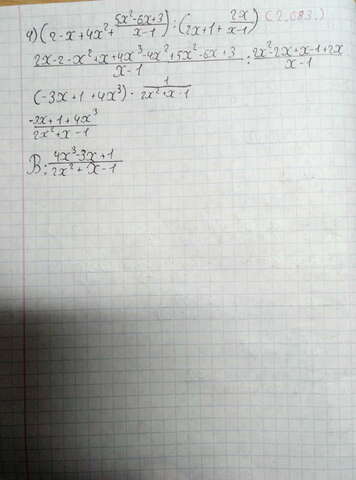 4) (2-x+4x²+(5x²-6x+3)/(x-1)) : (2x+1+2x/(x-1)) (2.083.)
(2x-2-x²+x+4x³-4x²+5x²-6x+3)/(x-1) : (2x²-2x+x-1+2x)/(x-1)
(-3x+1+4x³) · 1/(2x²+x-1)
(-3x+1+4x³)/(2x²+x-1)
B: (4x³-3x+1)/(2x²+x-1)